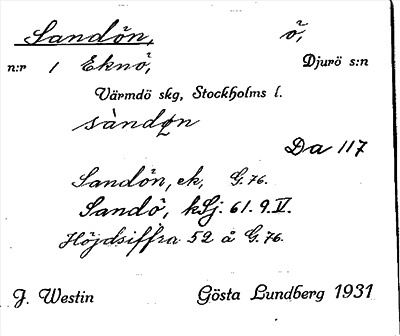 Sandön, ö,
n:r 1 Eknö, Djurö s:n
Värmdö skg, Stockholms l.
sàndn
Da 117
Sandön, ek, G. 76.
Sandö, kSj. 61. 9. IV.
Höjdsiffra 52 å G. 76.
J. Westin Gösta Lundberg 1931